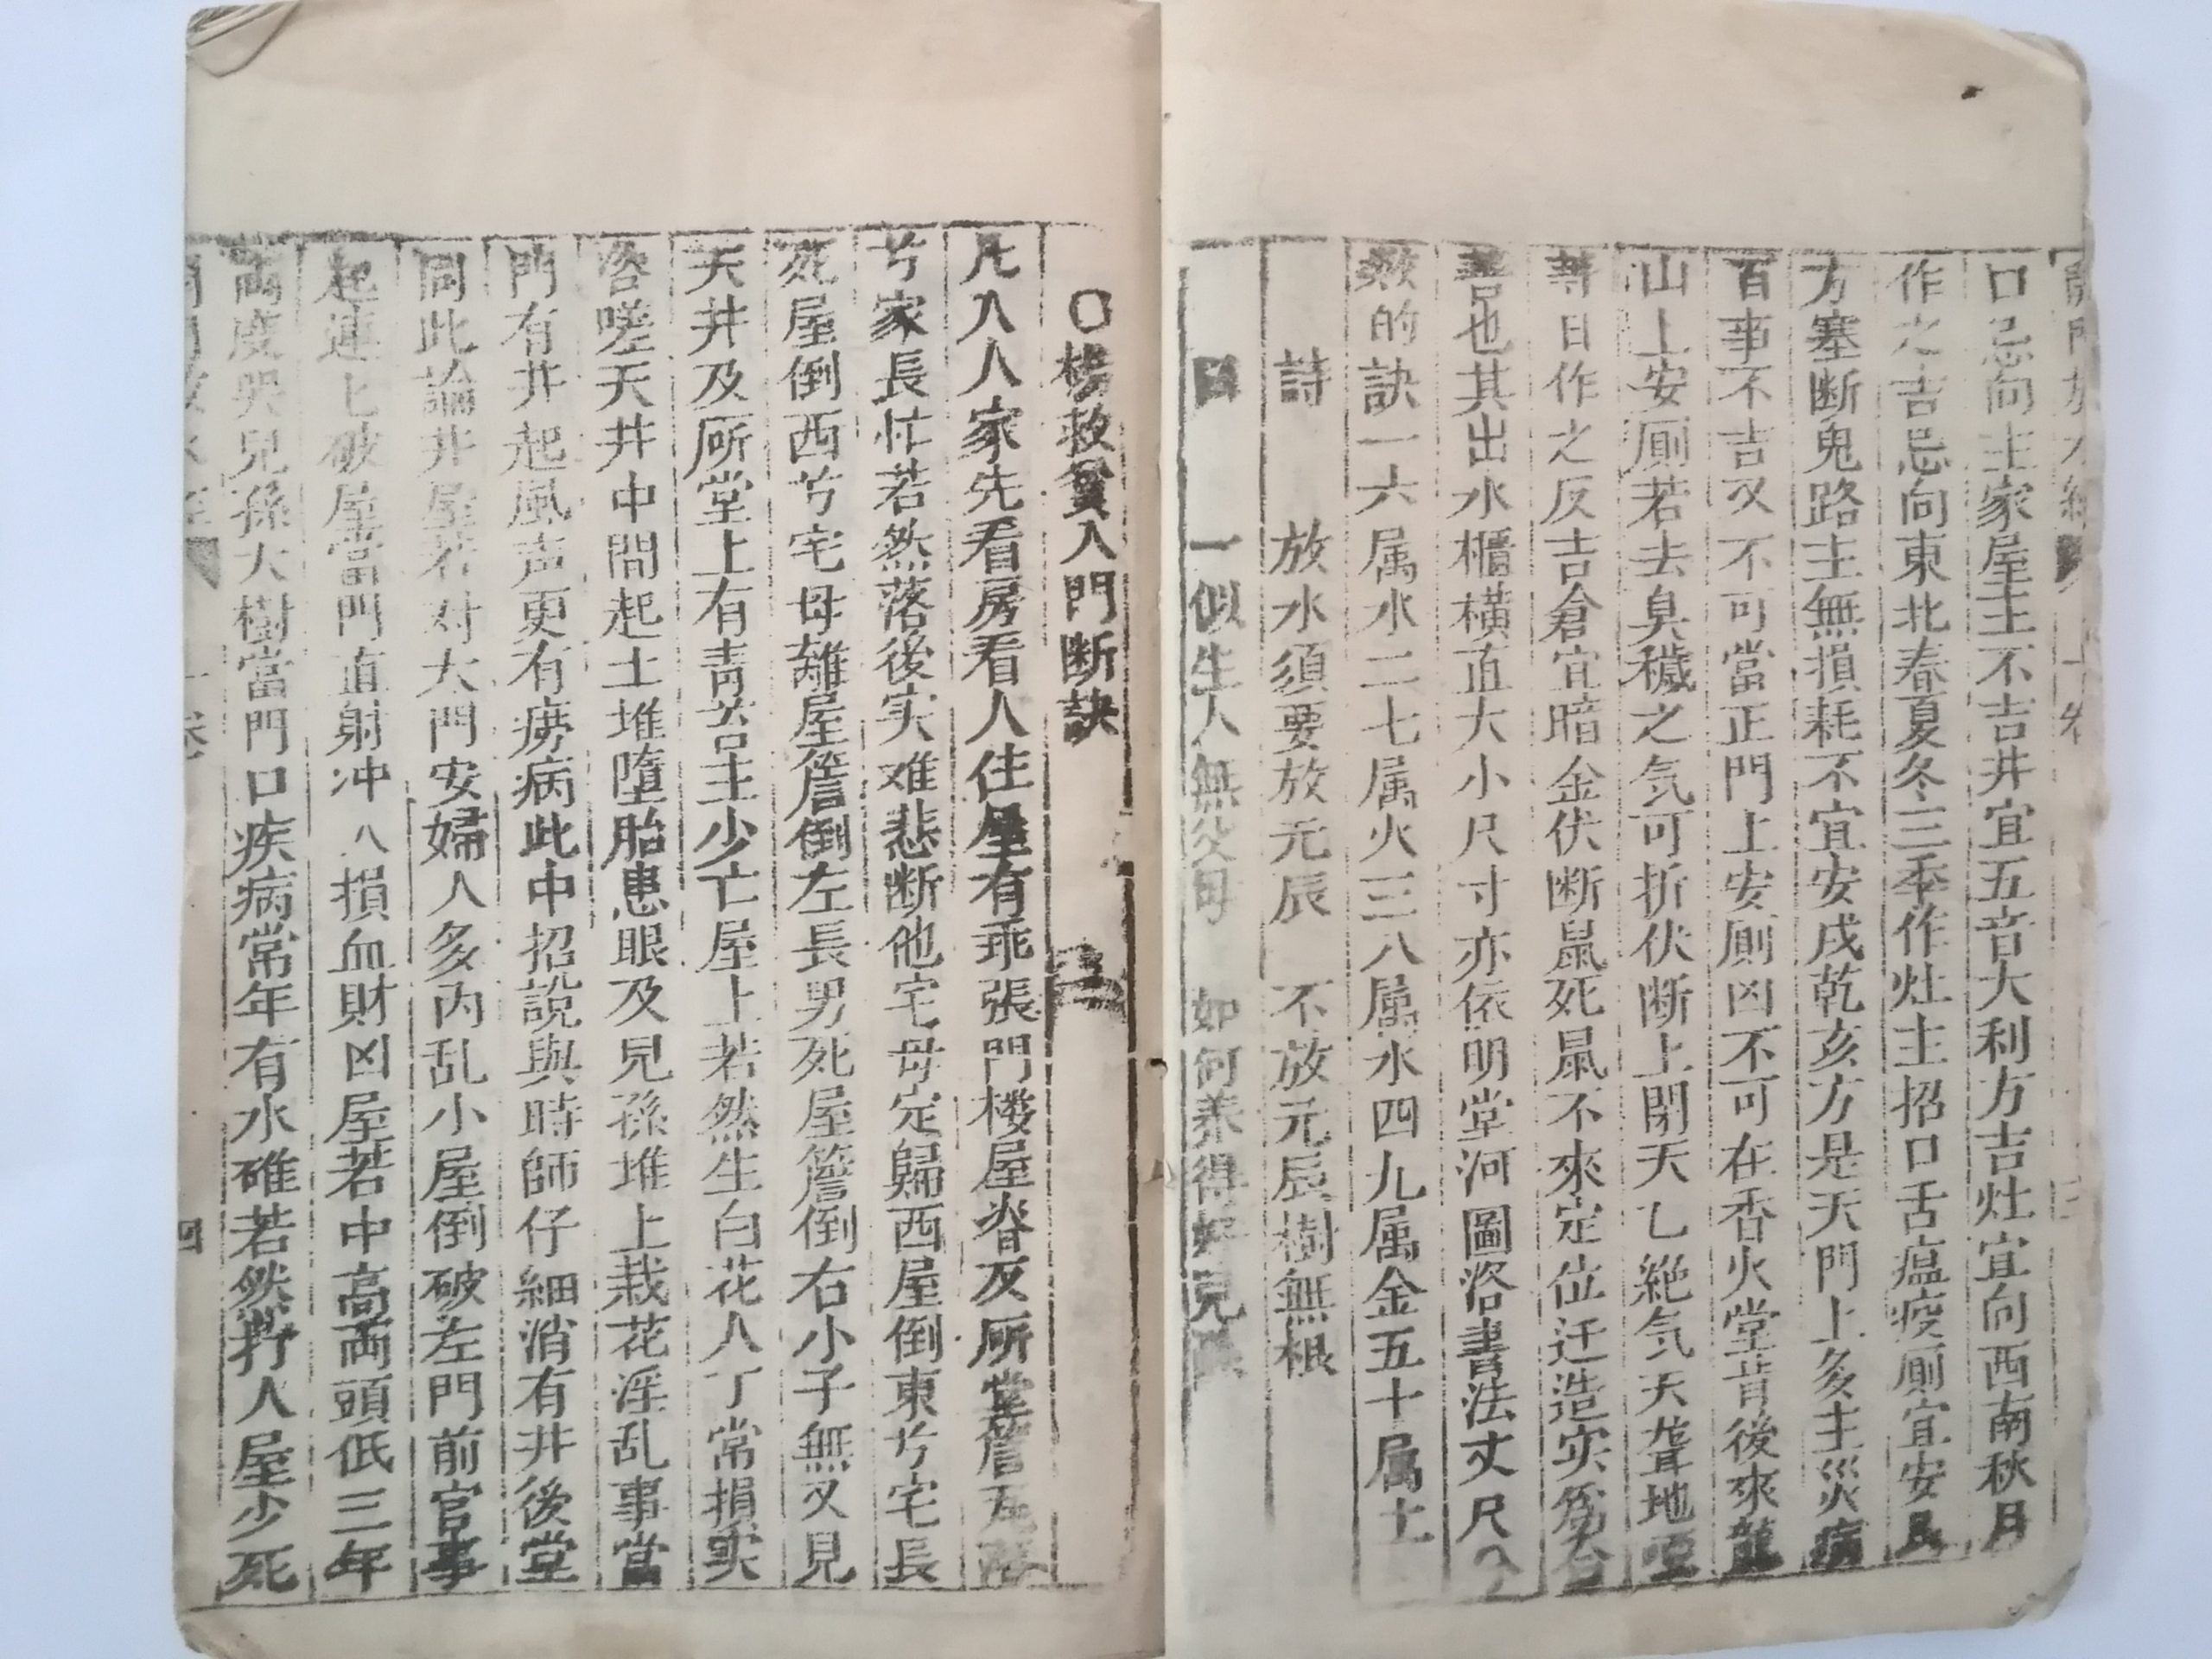 口忌向主家屋主不吉井宜五音大利方吉灶宜向西南秋月
作之吉忌向東北春夏冬三季作灶主招口舌瘟疫厠宜安
方塞断鬼路主無損耗不宜安戌乾亥方是天門上多主災病
百事不吉又不可當正門上安厠凶不可在香火堂背後來龍
山上安厠若去臭穢之気可折伏断上閉天乙絶気天聾地啞
等日作之反吉倉宜暗金伏断鼠死鼠不來定位迁造实
善也其出水櫃橫直大小尺寸亦依明堂河圖洛書法丈尺
的訣一六属水二七属火三八属水四九属金五十属土
詩 放水須要放元辰 不放元辰樹無根
曰 一似生人無父母 如何养得好兒孫
〇楊救貧入門断訣
凡入人家先看房看人住屋有乖張門樓屋脊及所堂簷
兮家長忙若然落後实难悲断他宅母定歸西屋倒東兮宅長
死屋倒西兮宅母難屋簷倒左長男死屋簷倒右小子無又見
天井及所堂上有青苔主少亡屋上若然生白花人丁常損
咨嗟天井中間起土堆墮胎患眼及兒孫堆上栽花淫乱事當
門有井起風声更有癆病此中招説與時師仔細消有井後堂
同此論井屋若对大門安婦人多内乱小屋倒破左門前官事
起連上破屋當門直射冲八損血財凶屋若中高両頭低三年
両度哭兒孫大樹當門口疾病常年有水碓若然打人屋少死
四